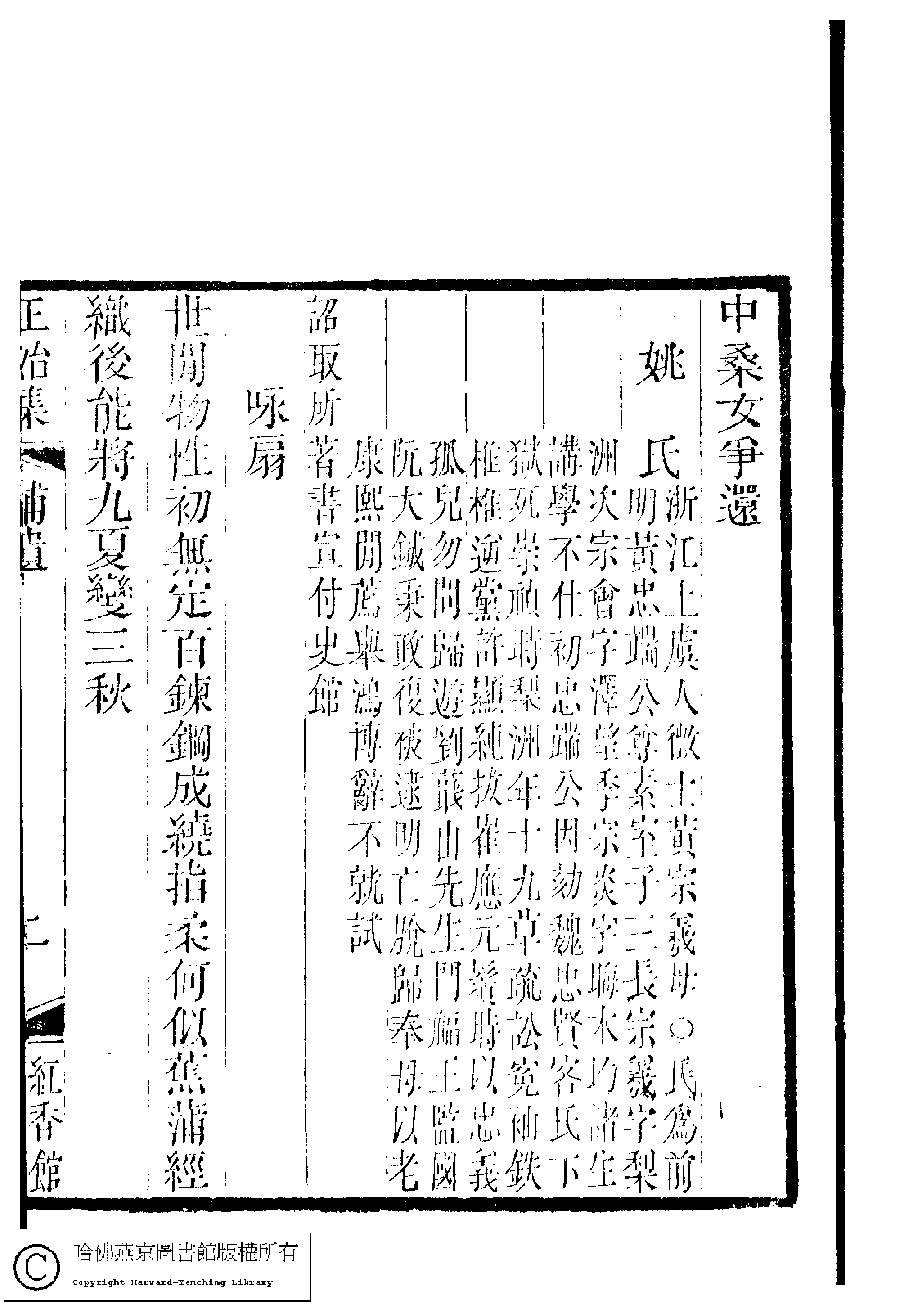 中桑女爭還
姚氏
浙江上虞人徵士黃宗羲母○氏為前
明黃忠端公尊素室子三長宗羲字梨
洲次宗會字澤望季宗炎字晦木均諸生
講學不仕初忠端公因劾魏忠賢客氏下
獄死崇禎時梨洲年十九草疏訟冤袖鉄
椎椎逆黨許顯純拔崔應元鬚時以忠義
孤兒勿問歸遊劉蕺山先生門福王監國
阮大鋮秉政復被逮明亡脫歸奉母以老
康熙閒薦舉鴻博辭不就試
詔取所著書宣付史館
咏扇
世閒物性初無定百鍊鋼成繞指柔何似蕉蒲經
織後能將九夏變三秋
正始集
補遺
二
紅香館
哈佛燕京圖書館版權所有
Copyright Harvard-Yenching Library